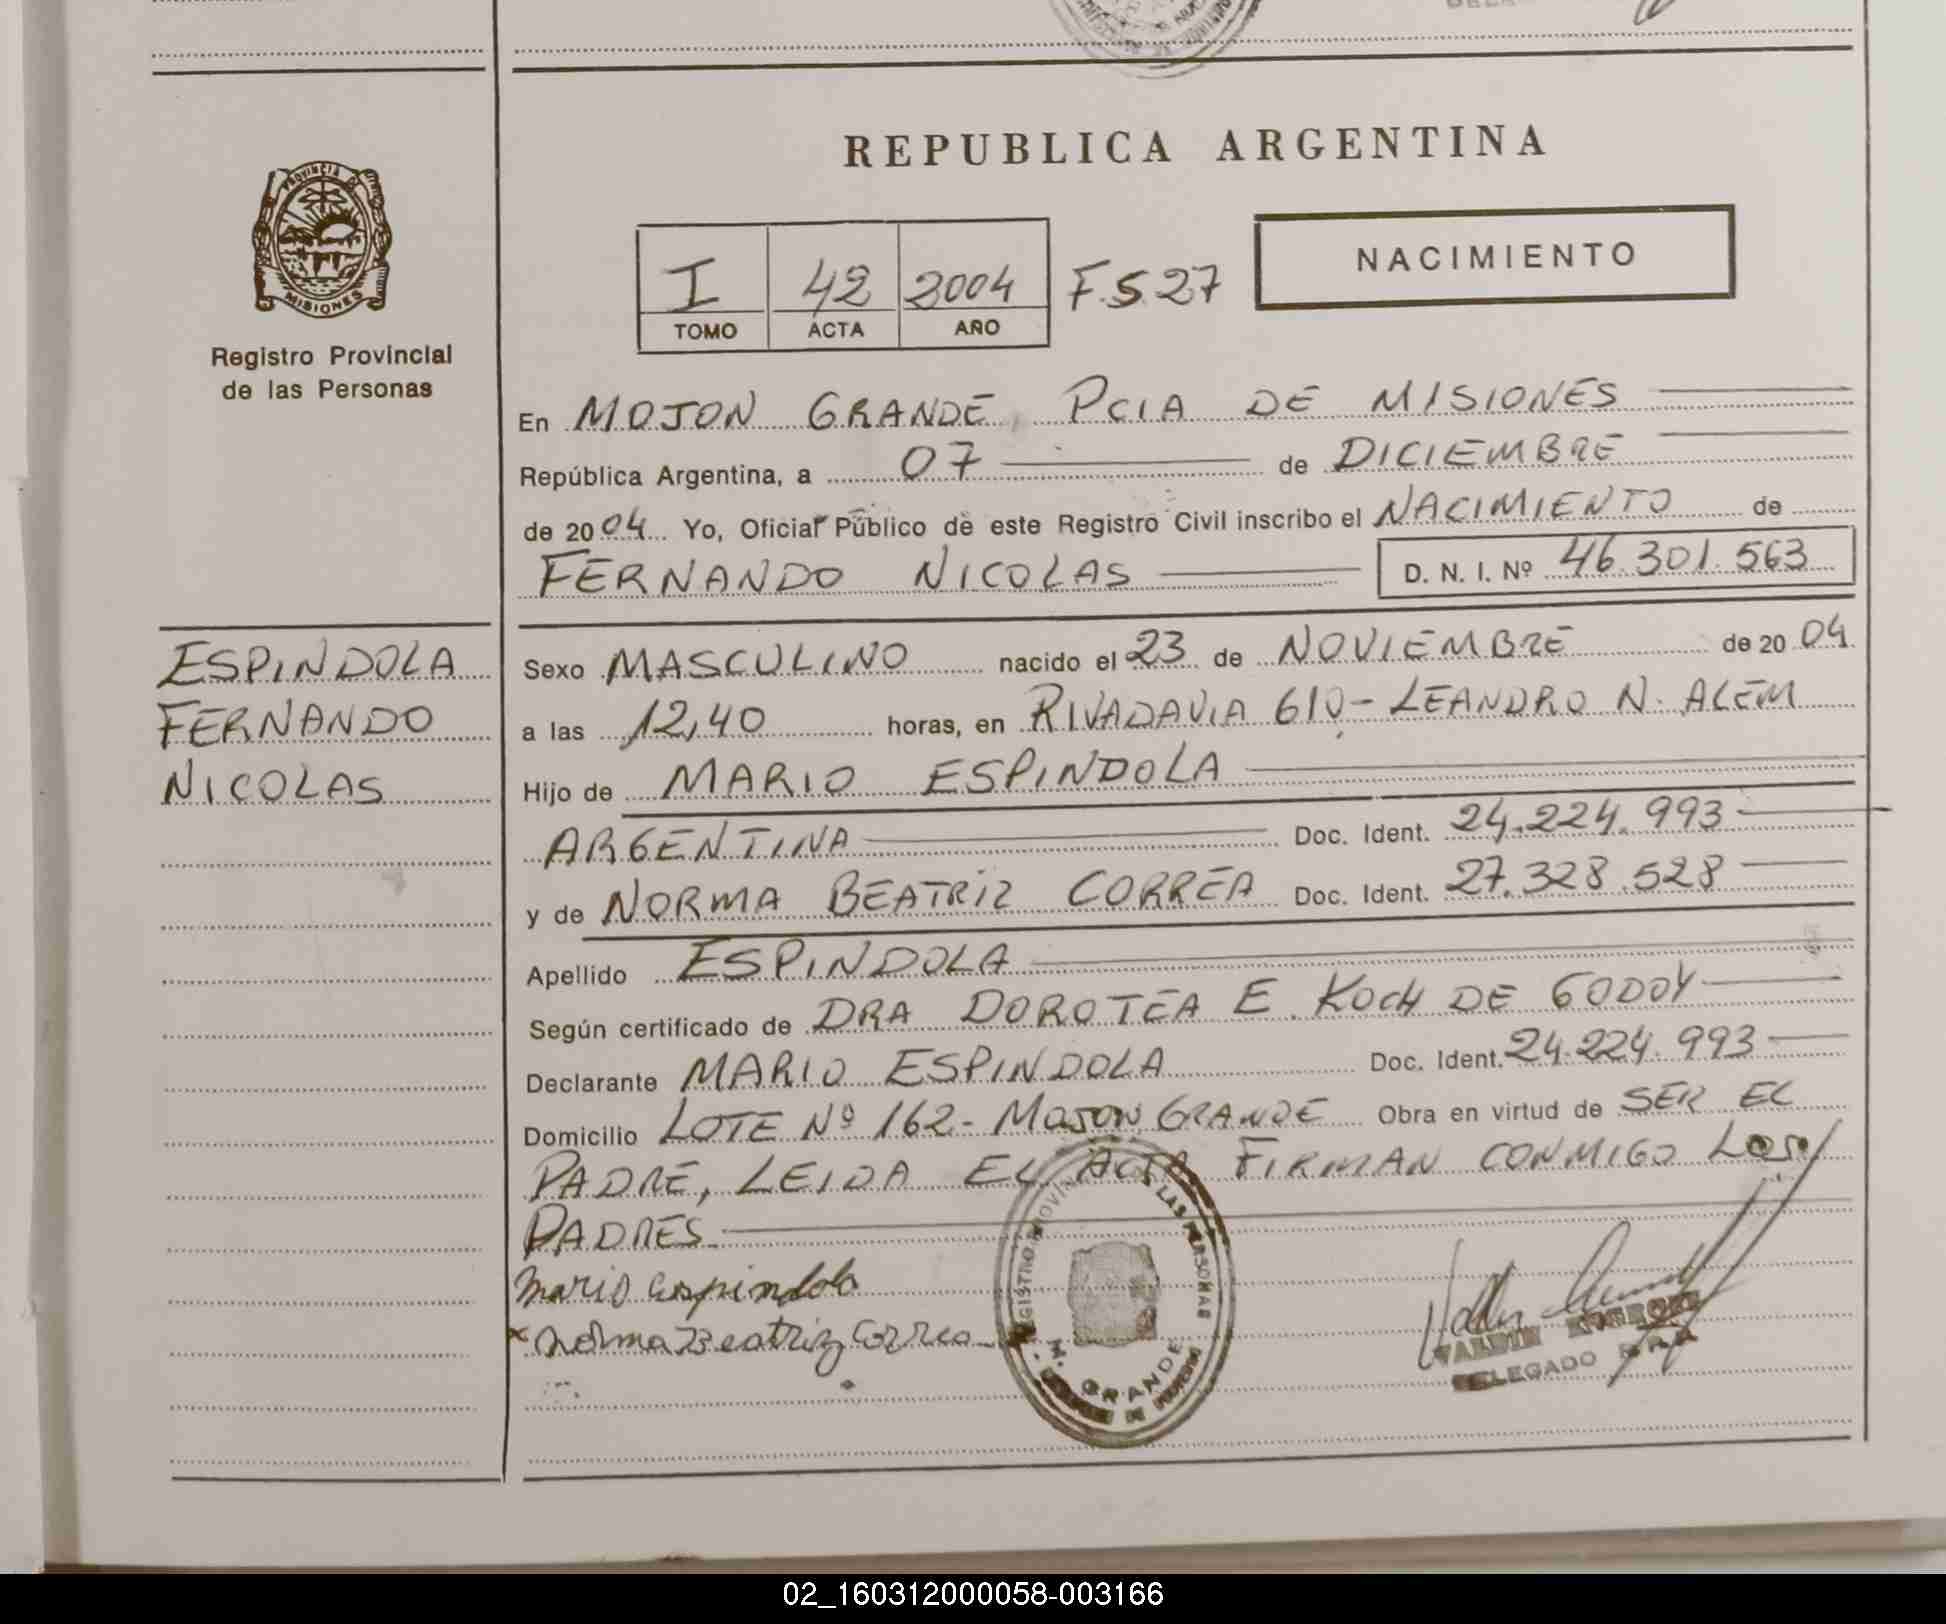 REPUBLICA ARGENTINA
PROVINCIA DE
MISIONES
Registro Provincial
de las Personas
I 42 2004 F.S.27
TOMO ACTA AÑO
NACIMIENTO
En MOJON GRANDE, PCIA DE MISIONES
República Argentina, a 07 de DICIEMBRE
de 2004 Yo, Oficial Público de este Registro Civil inscribo el NACIMIENTO de
FERNANDO NICOLAS D. N. I. Nº 46.301.563
ESPINDOLA
FERNANDO
NICOLAS
Sexo MASCULINO nacido el 23 de NOVIEMBRE de 2004
a las 12,40 horas, en RIVADAVIA 610 - LEANDRO N. ALEM
Hijo de MARIO ESPINDOLA
ARGENTINA Doc. Ident. 24.224.993
y de NORMA BEATRIZ CORREA Doc. Ident. 27.328.528
Apellido ESPINDOLA
Según certificado de DRA DOROTEA E. KOCH DE GODOY
Declarante MARIO ESPINDOLA Doc. Ident. 24.224.993
Domicilio LOTE Nº 162 - MOJON GRANDE Obra en virtud de SER EL
PADRE, LEIDA EL ACTA FIRMAN CONMIGO LOS
PADRES
Mario Espindola
Norma Beatriz Correa
REGISTRO PROVINCIAL LAS PERSONAS
M. GRANDE
DELEGADO R.P.P.
02_160312000058-003166